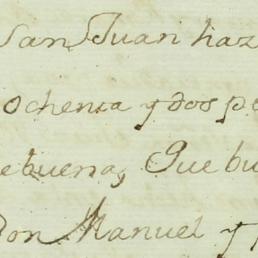 San Juan haz
ochenta y dos pe
ebuena, Que bu
Don Manuel y